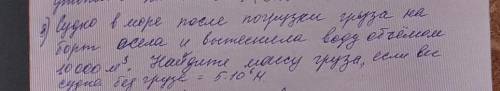 3) Судно в море после погрузки груза на
борт осела и вытеснила воду объёмом
10000 м³. Найдите массу груза, если вес
судна без груза = 5·10⁶Н